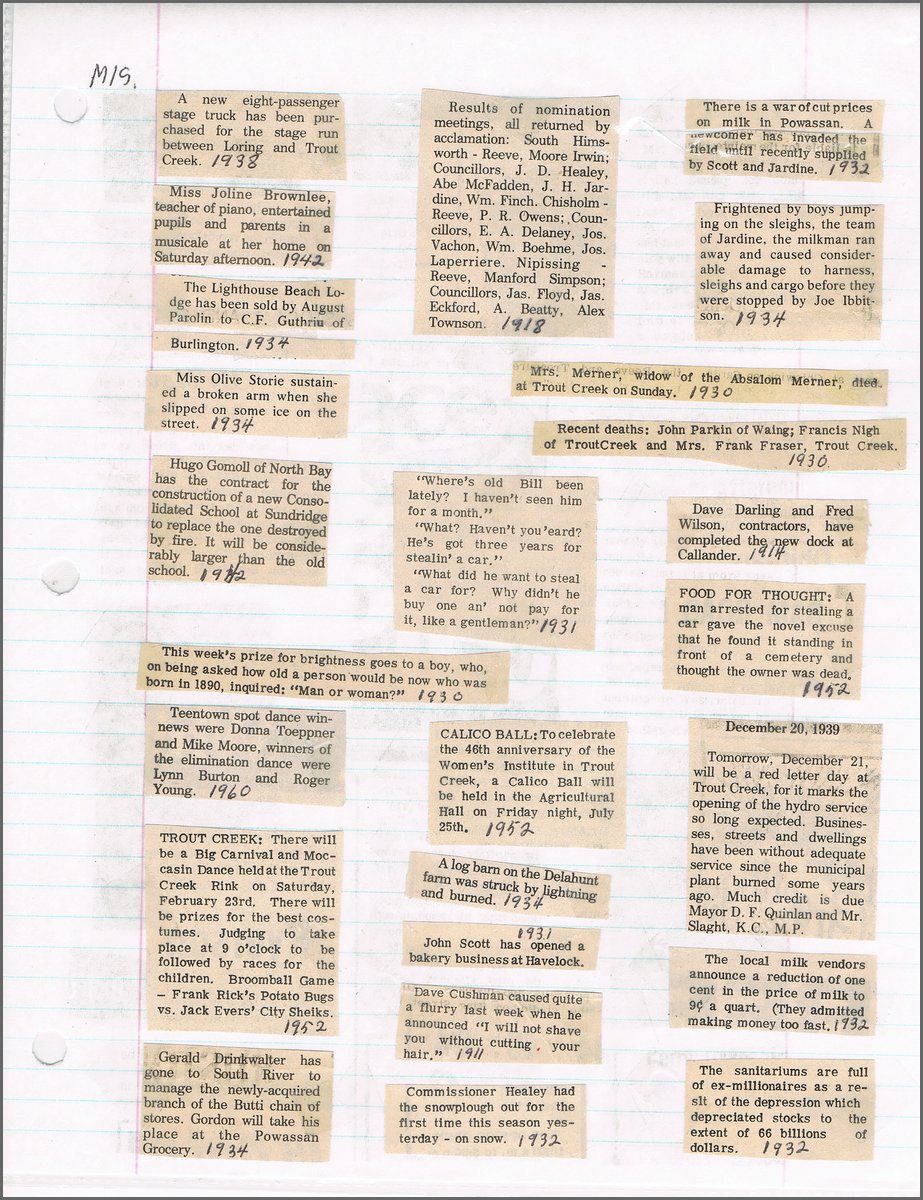 M/S.
A new eight-passenger
stage truck has been pur-
chased for the stage run
between Loring and Trout
Creek. 1938
Miss Joline Brownlee,
teacher of piano, entertained
pupils and parents in a
musicale at her home on
Saturday afternoon. 1942
The Lighthouse Beach Lo-
dge has been sold by August
Parolin to C.F. Guthriu of
Burlington. 1934
Miss Olive Storie sustain-
ed a broken arm when she
slipped on some ice on the
street. 1934
Hugo Gomoll of North Bay
has the contract for the
construction of a new Conso-
lidated School at Sundridge
to replace the one destroyed
by fire. It will be conside-
rably larger than the old
school.
Results of nomination
meetings, all returned by
acclamation: South Hims-
worth - Reeve, Moore Irwin;
Councillors, J. D. Healey,
Abe McFadden, J. H. Jar-
dine, Wm. Finch. Chisholm -
Reeve, P. R. Owens; Coun-
cillors, E. A. Delaney, Jos.
Vachon, Wm. Boehme, Jos.
Laperriere. Nipissing -
Reeve, Manford Simpson;
Councillors, Jas. Floyd, Jas.
Eckford, A. Beatty, Alex
Townson. 1918
There is a war of cut prices
on milk in Powassan. A
newcomer has invaded the
field until recently supplied
by Scott and Jardine. 1932
Frightened by boys jump-
ing on the sleighs, the team
of Jardine, the milkman ran
away and caused consider-
able damage to harness,
sleighs and cargo before they
were stopped by Joe Ibbit-
son. 1934
Mrs. Merner, widow of the Absalom Merner, died
at Trout Creek on Sunday. 1930
Recent deaths: John Parkin of Waing; Francis Nigh
of TroutCreek and Mrs. Frank Fraser, Trout Creek.
1930
"Where's old Bill been
lately? I haven't seen him
for a month."
"What? Haven't you 'eard?
He's got three years for
stealin' a car."
"What did he want to steal
a car for? Why didn't he
buy one an' not pay for
it, like a gentleman?" 1931
Dave Darling and Fred
Wilson, contractors, have
completed the new dock at
Callander. 1914
FOOD FOR THOUGHT: A
man arrested for stealing a
car gave the novel excuse
that he found it standing in
front of a cemetery and
thought the owner was dead.
1952
This week's prize for brightness goes to a boy, who,
on being asked how old a person would be now who was
born in 1890, inquired: "Man or woman?" 1930
Teentown spot dance win-
news were Donna Toeppner
and Mike Moore, winners of
the elimination dance were
Lynn Burton and Roger
Young. 1960
TROUT CREEK: There will
be a Big Carnival and Moc-
casin Dance held at the Trout
Creek Rink on Saturday,
February 23rd. There will
be prizes for the best cos-
tumes. Judging to take
place at 9 o'clock to be
followed by races for the
children. Broomball Game
- Frank Rick's Potato Bugs
vs. Jack Evers' City Sheiks.
1952
Gerald Drinkwalter has
gone to South River to
manage the newly-acquired
branch of the Butti chain of
stores. Gordon will take his
place at the Powassan
Grocery. 1934
CALICO BALL: To celebrate
the 46th anniversary of the
Women's Institute in Trout
Creek, a Calico Ball will
be held in the Agricultural
Hall on Friday night, July
25th. 1952
A log barn on the Delahunt
farm was struck by lightning
and burned. 1934
1931
John Scott has opened a
bakery business at Havelock.
Dave Cushman caused quite
a flurry last week when he
announced "I will not shave
you without cutting . your
hair." 1911
Commissioner Healey had
the snowplough out for the
first time this season yes-
terday - on snow. 1932
December 20, 1939
Tomorrow, December 21,
will be a red letter day at
Trout Creek, for it marks the
opening of the hydro service
so long expected. Business-
es, streets and dwellings
have been without adequate
service since the municipal
plant burned some years
ago. Much credit is due
Mayor D. F. Quinlan and Mr.
Slaght, K.C., M.P.
The local milk vendors
announce a reduction of one
cent in the price of milk to
9¢ a quart. (They admitted
making money too fast. 1932
The sanitariums are full
of ex-millionaires as a re-
sit of the depression which
depreciated stocks to the
extent of 66 billions of
dollars. 1932